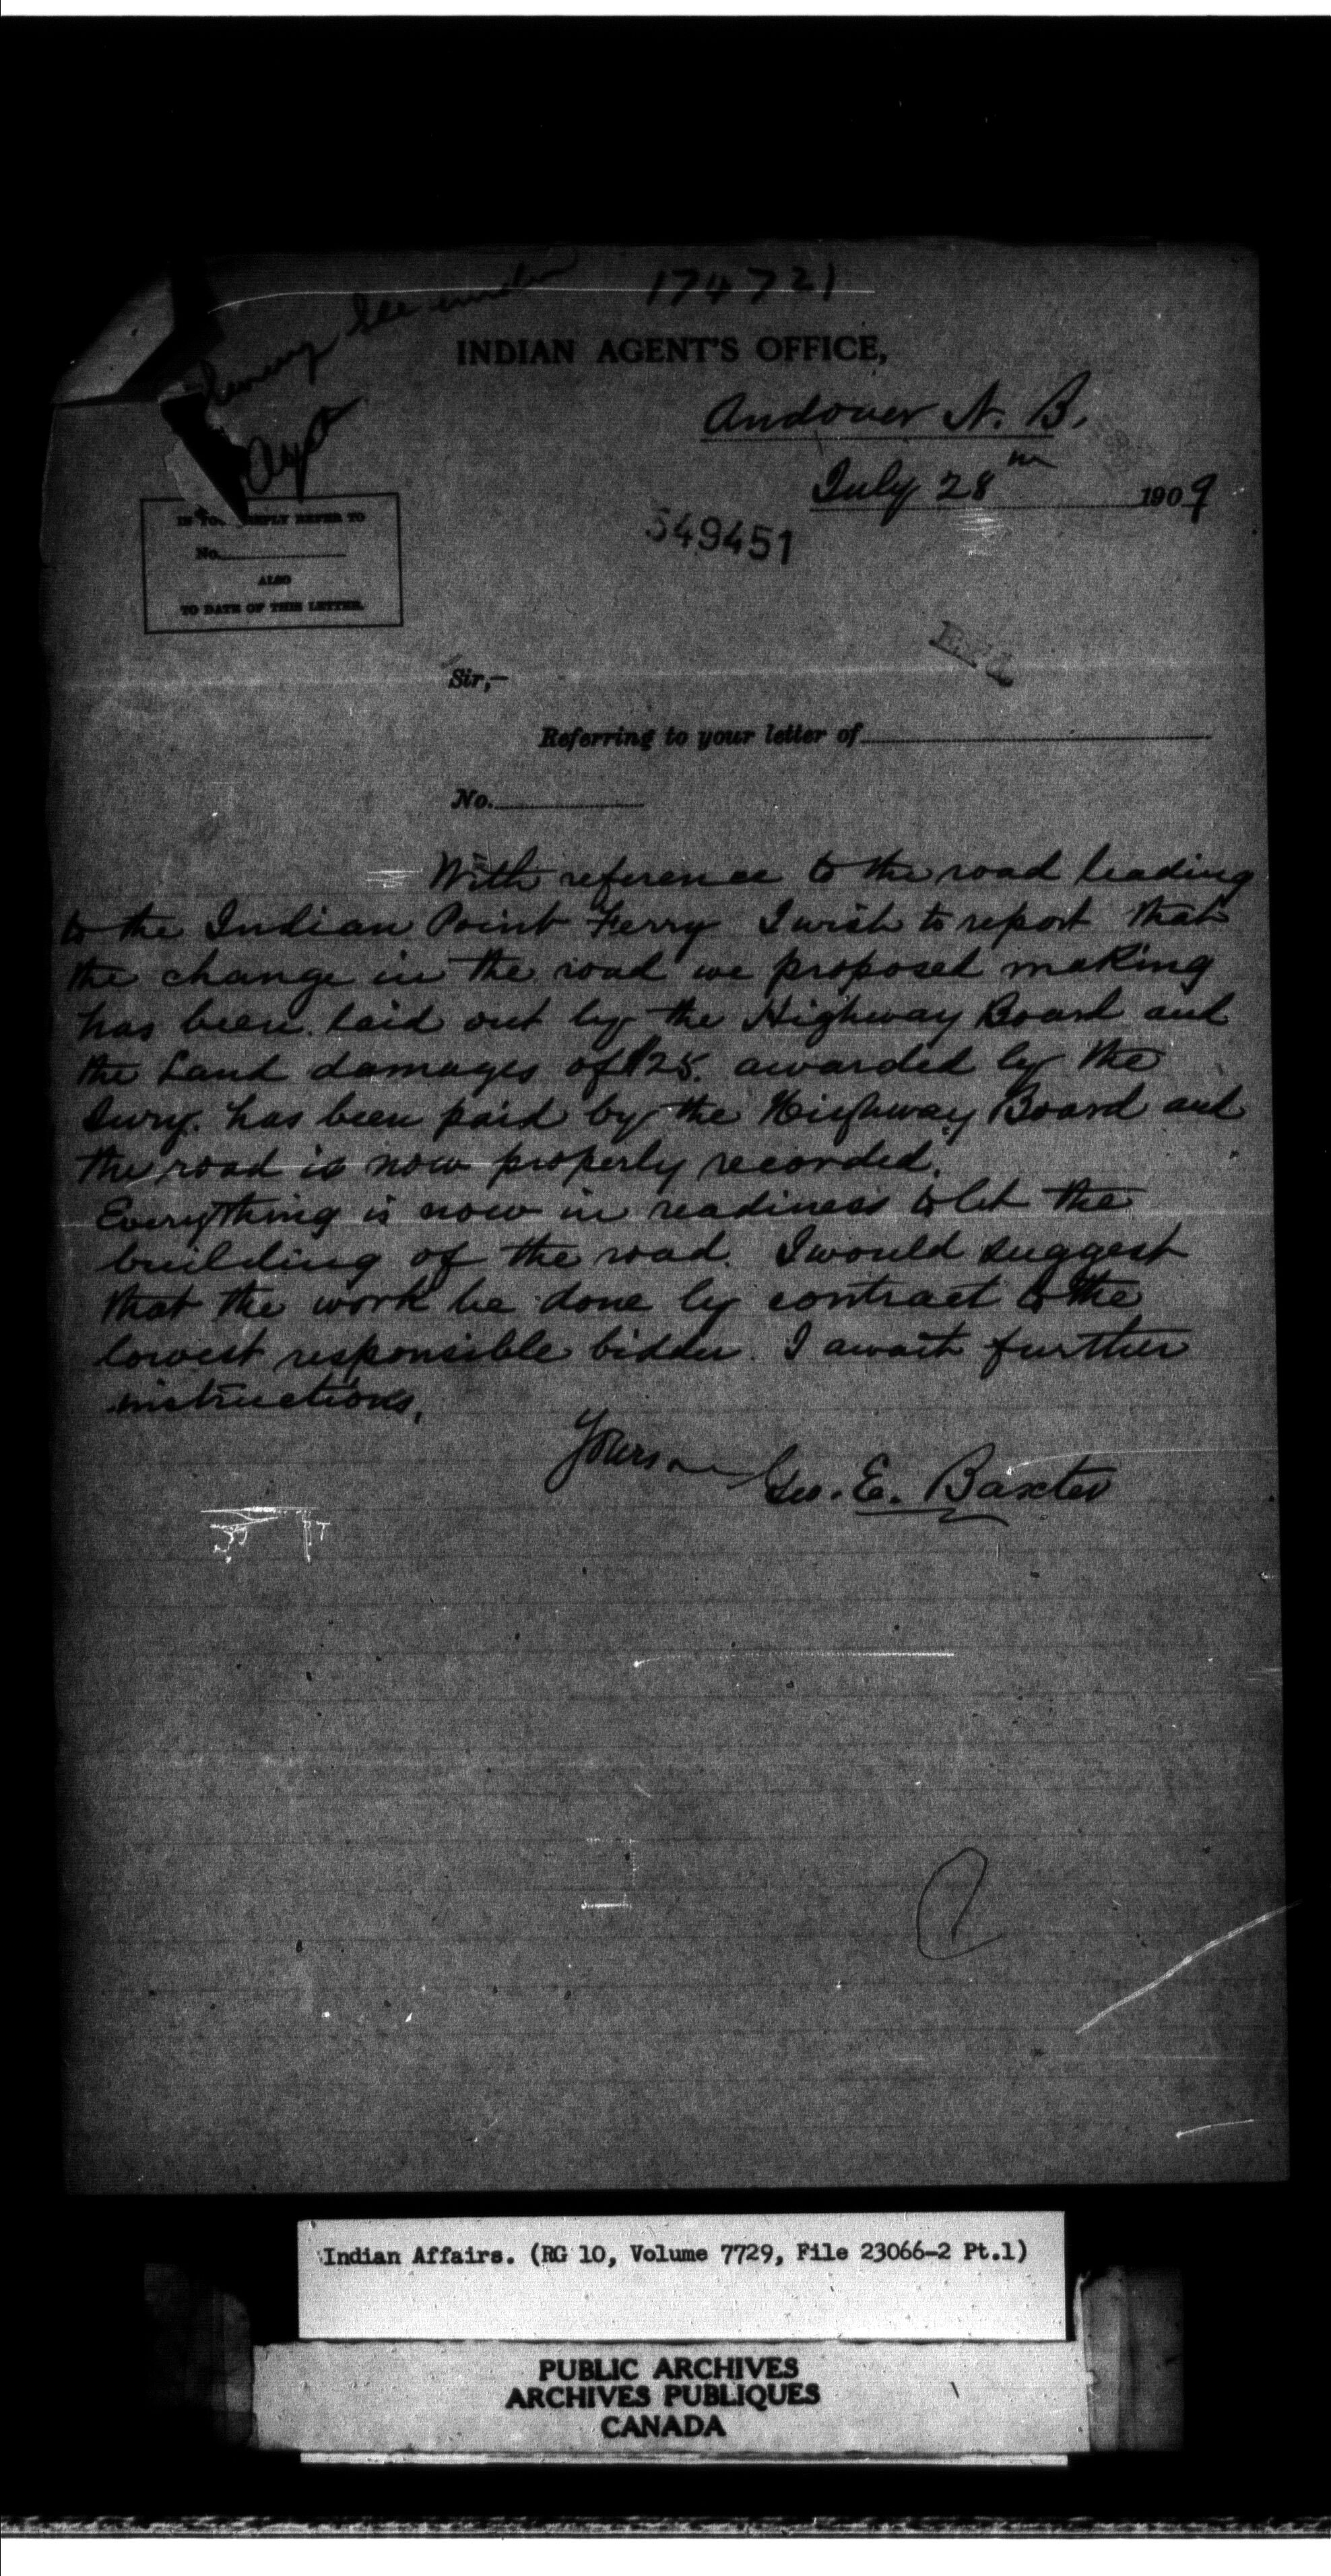 174721
See under
INDIAN AGENT'S OFFICE,
Andover N. B.
July 28th 1909
549451
REFER TO
No.
ALSO
TO DATE OF THIS LETTER.
Sir,—
Referring to your letter of
No.
With reference to the road leading
to the Indian Point Ferry I wish to report that
the change in the road we proposed making
has been laid out by the Highway Board and
the Land damages of $25. awarded by the
Jury. has been paid by the Highway Board and
the road is now properly recorded.
Everything is now in readiness to let the
building of the road. I would suggest
that the work be done by contract to the
lowest responsible bidder. I await further
instructions,
Yours
Geo. E. Baxter
Indian Affairs. (RG 10, Volume 7729, File 23066-2 Pt.1)
PUBLIC ARCHIVES
ARCHIVES PUBLIQUES
CANADA